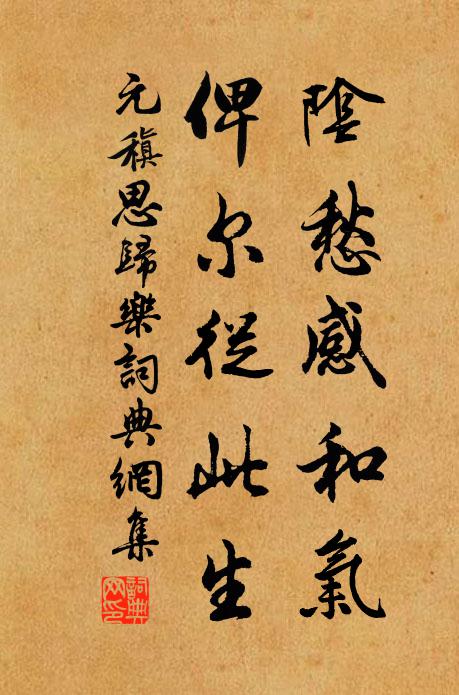 陰愁感和氣
俾尔從此生
元稹思歸樂詞典網集
詞典網印